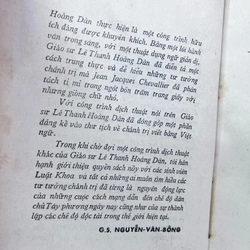 Hoàng Dàn thực hiện là một công trình hữu
ích đáng được khuyến khích. Bằng một lối hành
văn trong sáng, với một thuật dụng ngữ giản dị,
Giáo sư Lê Thanh Hoàng Dân đã diễn tả một
cách trung thực và dễ hiểu những tư tưởng
chánh trị mà Jean Jacques Chevallier đã phân
tách tỉ mỉ trong ngót bốn trăm trang giấy với
nhưng giòng chữ nhỏ.
Với công trình dịch thuật nói trên Giáo
sư Lê Thanh Hoàng Dân đã đóng góp một phần
đáng kể vào thư tịch về chánh trị viết bằng Việt
ngữ.
Trong khi chờ đợi một công trình dịch thuật
khác của Giáo sư Lê Thanh Hoàng Dân, tôi hân
hạnh giới thiệu quyển sách này với các sinh viên
Luật Khoa và tất cả những ai muốn tìm hiểu các
tư tưởng chánh trị đã từng là nguyên động lực
của những cuộc cách mạng dẫn đến chế độ dân
chủ Tây phương ngày nay cũng như của sự thành
lập các chế độ độc tài trong thế giới hiện tại.
G.S. NGUYỄN-VĂN-BÔNG